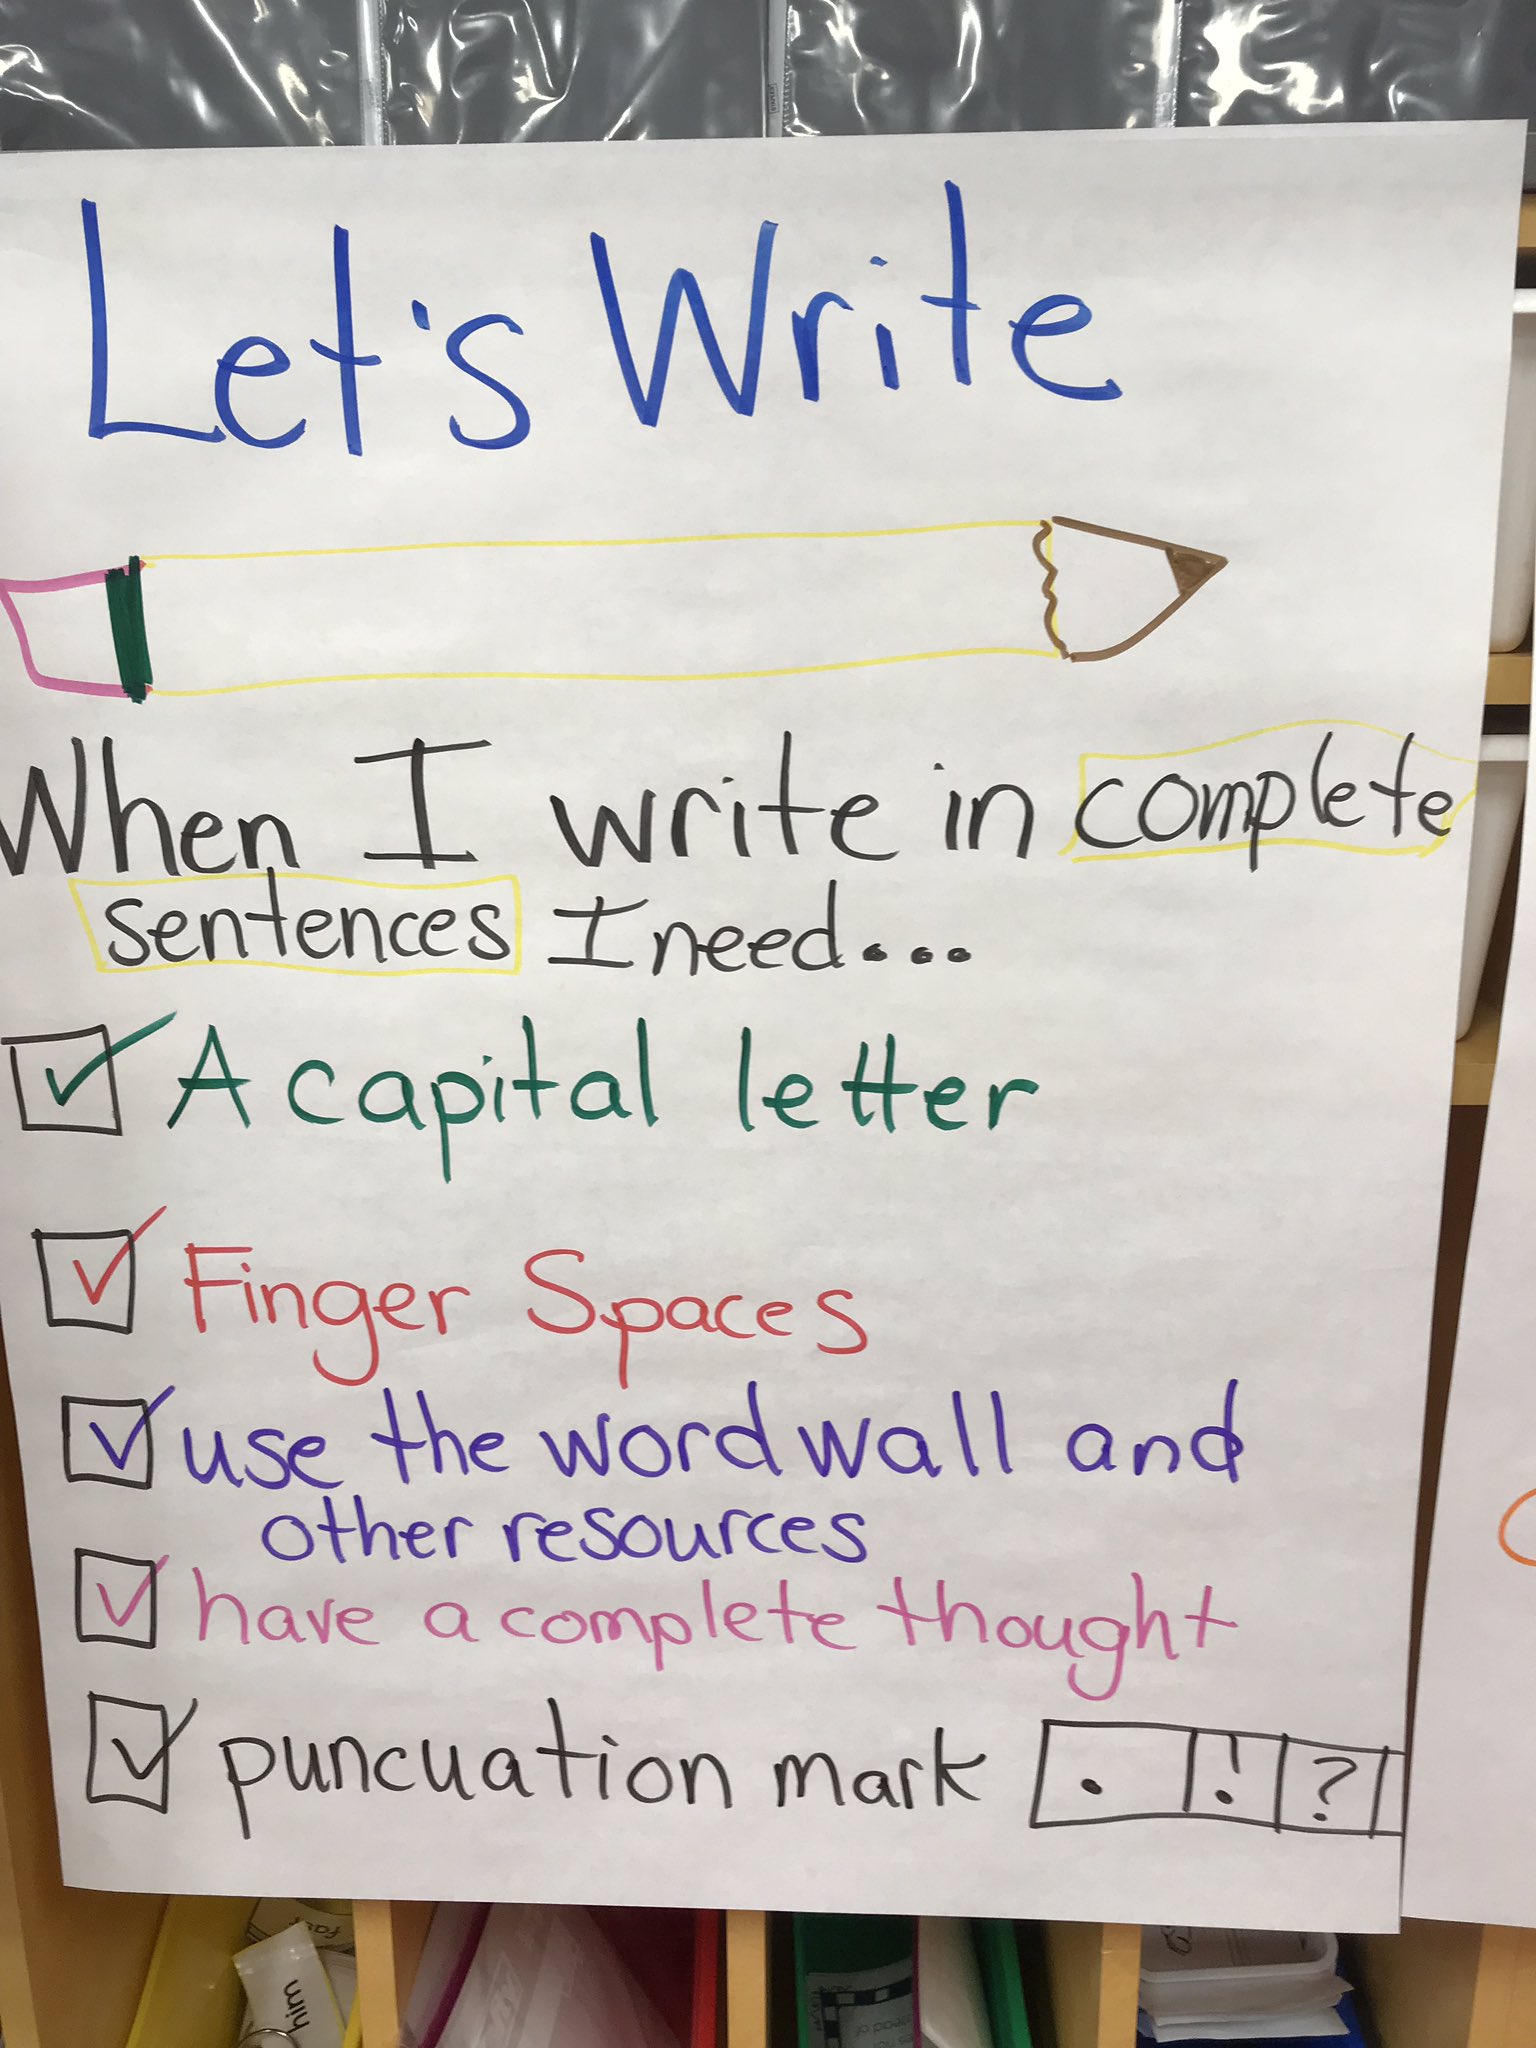 Let's Write
When I write in complete
sentences I need...
A capital letter
Finger Spaces
use the word wall and
other resources
have a complete thought
puncuation mark . ! ?
him